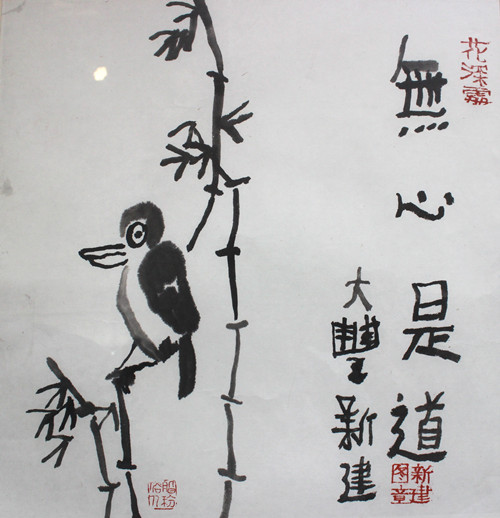 花深霧
無心是道
大豐新建
新建
图章